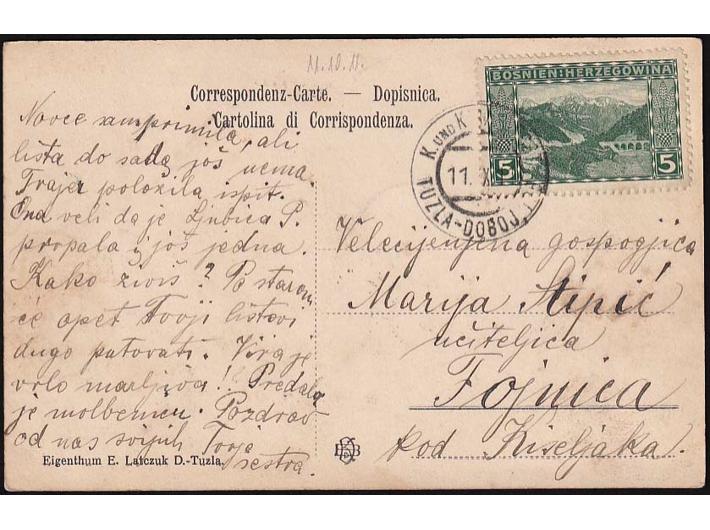 11.10.11.
Correspondenz-Carte. — Dopisnica.
Cartolina di Corrispondenza.
BOSNIEN-HERZEGOWINA
5 5
K. UND K.
11. X
TUZLA-DOBOJ
Novce sam primila, ali
lista do sada još nema.
Trajer položila ispit.
Ona veli da je Ljubica P.
propala i još jedna.
Kako živiš? Po starom
će opet Tvoji listovi
dugo putovati. Vira je
vrlo marljiva! Predala
je molbe
Pozdrav
od nas svijuh Tvoja
sestra.
Velecijenjena gospogjica
Marija Stipić
učiteljica
Fojnica
kod Kiseljaka.
Eigenthum E. Latczuk D.-Tuzla.